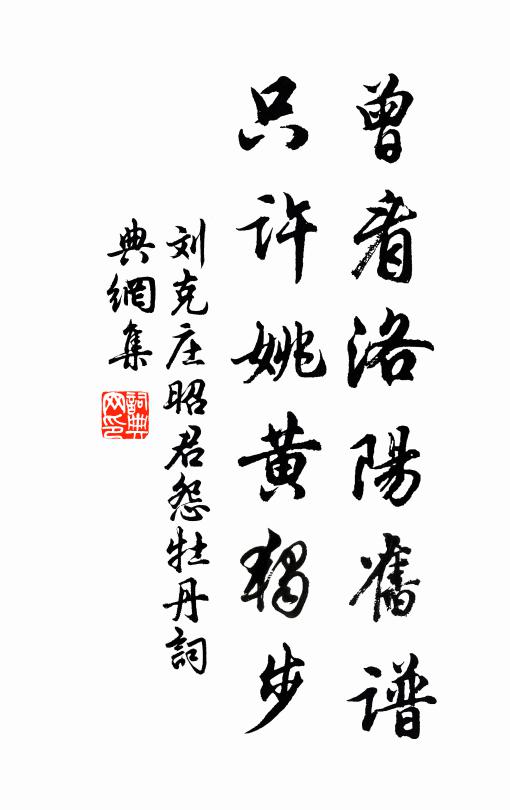 曾看洛陽舊谱
只许姚黄獨步
刘克庄昭君怨牡丹詞
典網集
詞典网印